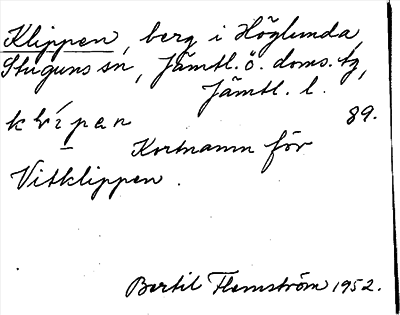 Klippen, berg i Höglunda,
Stuguns sn, Jämtl. ö. doms. tg,
Jämtl. l.
klìpan 89.
Kortnamn för
Vitklippen.
Bertil Flemström 1952.